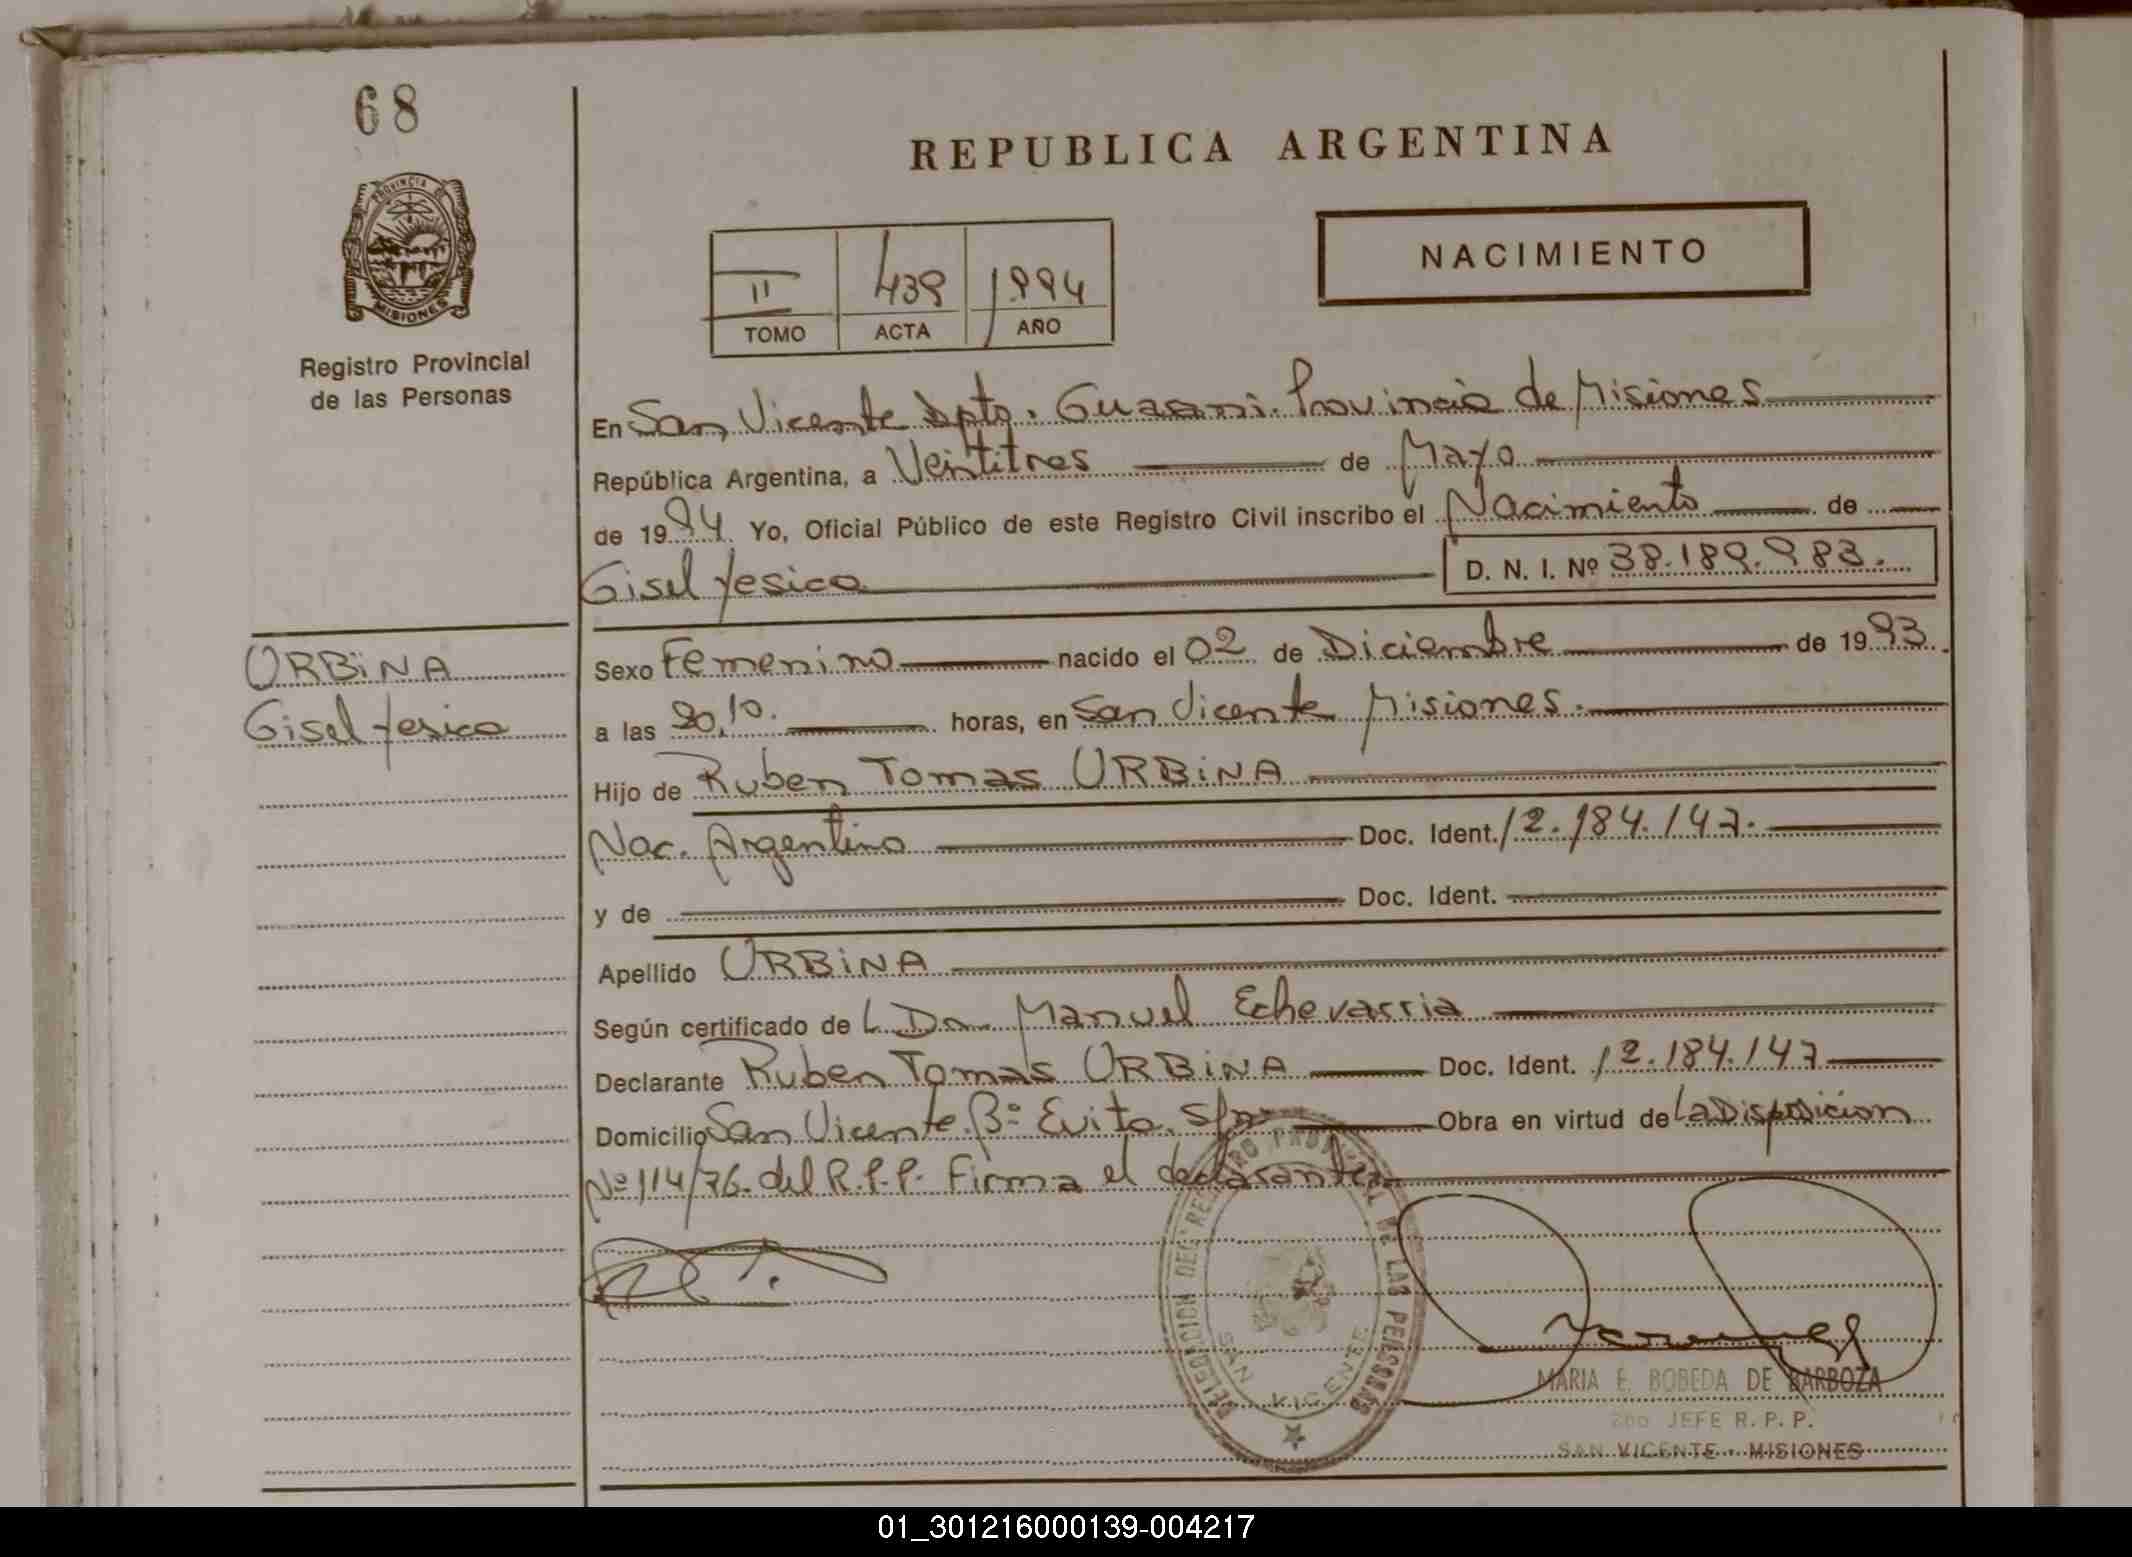 68
REPUBLICA ARGENTINA
PROVINCIA DE
MISIONES
Registro Provincial
de las Personas
II 439 1994
TOMO ACTA AÑO
NACIMIENTO
En San Vicente Dpto. Guarani. Provincia de Misiones
República Argentina, a Veintitres de Mayo
de 1994 Yo, Oficial Público de este Registro Civil inscribo el Nacimiento de
Gisel Yesica D. N. I. Nº 38.189.983.
URBiNA
Gisel Yesica
Sexo Femenino nacido el 02 de Diciembre de 1993.
a las 20,10. horas, en San Vicente Misiones.
Hijo de Ruben Tomas URBiNA
Nac. Argentino Doc. Ident. 12.184.147.
y de Doc. Ident.
Apellido URBiNA
Según certificado de L Dr. Manuel Echevarria
Declarante Ruben Tomas URBiNA Doc. Ident. 12.184.147
Domicilio San Vicente. Bº Evita. S/n Obra en virtud de La Disposicion
Nº 114/76. del R.P.P. Firma el declarante
DELEGACION DEL REGISTRO PROVINCIAL DE LAS PERSONAS
SAN VICENTE
MARIA E. BOBEDA DE BARBOZA
2do JEFE R. P. P.
SAN VICENTE - MISIONES
01_301216000139-004217